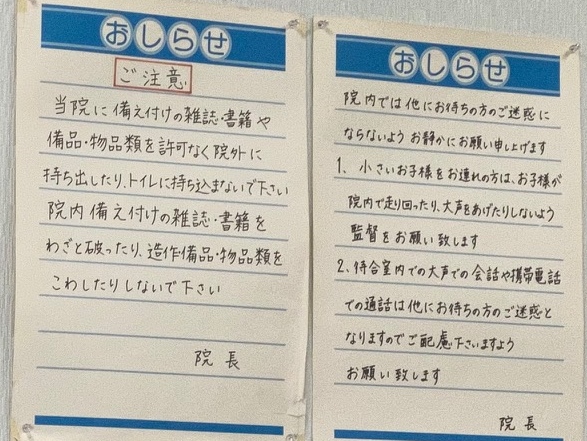 おしらせ
ご注意
当院に備え付けの雑誌・書籍や
備品・物品類を許可なく院外に
持ち出したり、トイレに持ち込まないで下さい
院内備え付けの雑誌・書籍を
わざと破ったり、造作備品・物品類を
こわしたりしないで下さい
院長
おしらせ
院内では他にお待ちの方のご迷惑に
ならないようお静かにお願い申し上げます
1、小さいお子様をお連れの方は、お子様が
院内で走り回ったり、大声をあげたりしないよう
監督をお願い致します
2、待合室内での大声での会話や携帯電話
での通話は他にお待ちの方のご迷惑と
なりますのでご配慮下さいますよう
お願い致します
院長